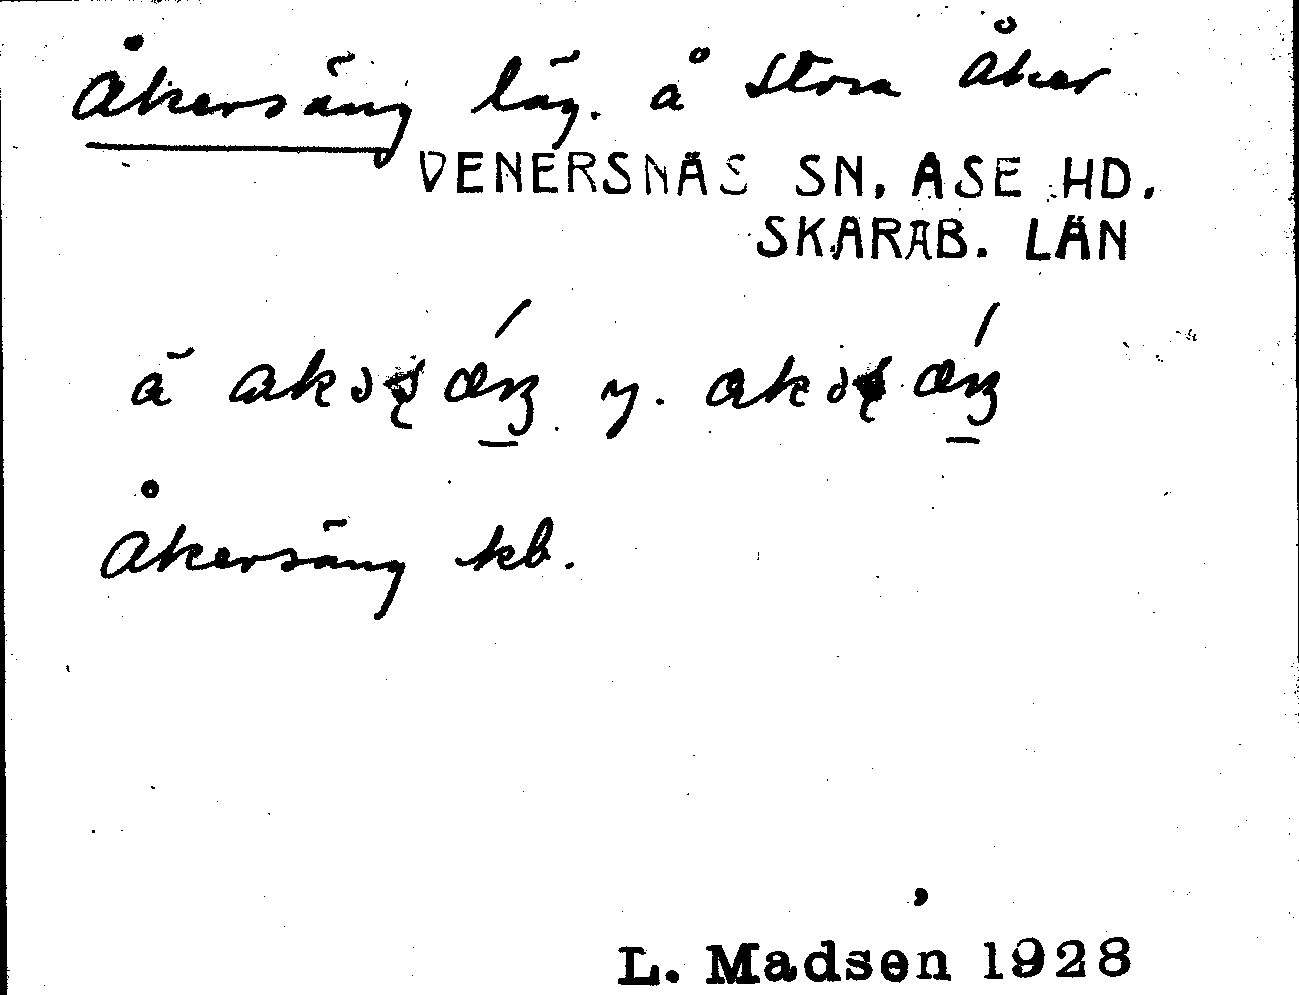 Åkersäng läg. å Stora Åker
VENERSNÄS SN. ASE HD.
SKARAB. LÄN
y.
Åkersäng kb.
L. Madsen 1928